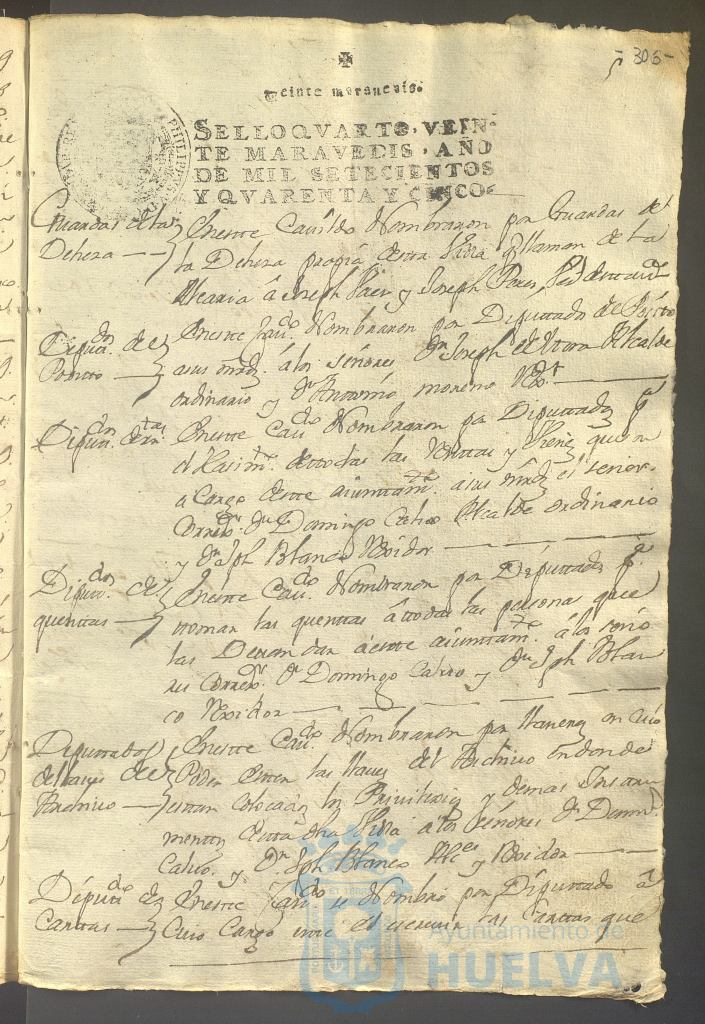 - 306 -
Veinte maravedis.
SELLO QVARTO, VEIN-
TE MARAVEDIS, AÑO
DE MIL SETECIENTOS
Y QVARENTA Y CINCO.
Guardas de la
Deheza
Eneste Cavildo Nombraron por Guardas de
la Deheza propia desta Villa q llaman de la
Alcaria á Joseph y Joseph
Diputdo. de
Posito
Eneste Cavdo. Nombraron por Diputtados del Posito
á los señores Dn Joseph Alcalde
ordinario y Dn Antonio moreno Rexor.
Diputdos. de
Eneste Cavdo. Nombraron por Diputtados pa
el Hasimto. de todas las Renttas y que son
a Cargo deste aiuntamto. el señor
Corredor. Dn Domingo Calvo Alcalde ordinario
y Dn Jph Blanco Rexidor
Diputdos. de
quenttas
Eneste Cavdo. Nombraron por Diputtados pa.
ttomar las quenttas á ttodas las personas que
las Devan dar á este aiuntamto. á los seño
res Corredor. Dn Domingo Calvo y Dn Jph Blan
co Rexidor
Diputtados
de llaves de
Archivo
Eneste Cavdo. Nombraron por llaveros en cuio
Poder esten las llaves del Archivo en donde
estan colocados los Privilexios y demas Instru
menttos desta dha Villa a los señores Dn Domingo
Calvo y Dn Jph Blanco Alces y Rexidor
Diputdo de
Carttas
Eneste Cavdo se Nombro por Diputtado á
Cuio Cargo este el escrevir las Carttas que
Ayuntamiento de
HUELVA